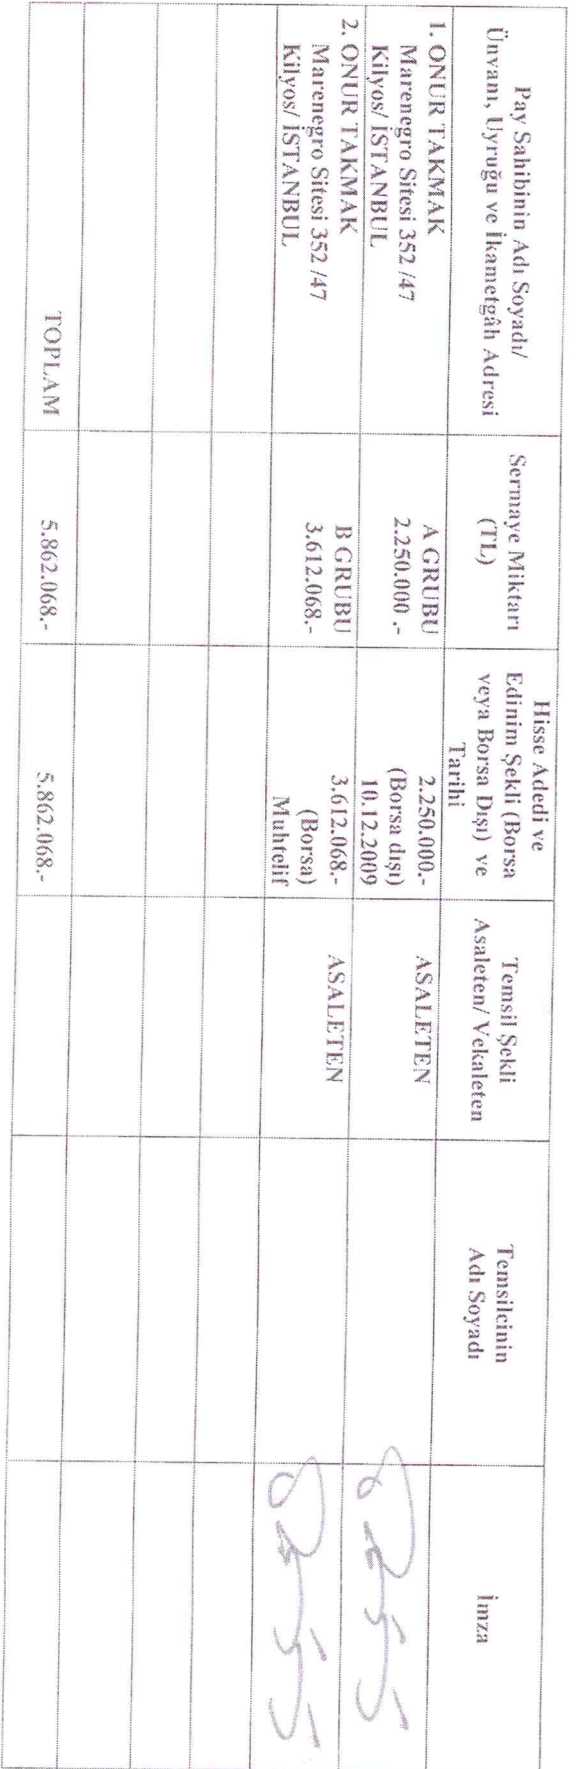 Pay Sahibinin Adı Soyadı/
Ünvanı, Uyruğu ve İkametgâh Adresi
Sermaye Miktarı
(TL)
Hisse Adedi ve
Edinim Şekli (Borsa
veya Borsa Dışı) ve
Tarihi
Temsil Şekli
Asaleten/ Vekaleten
Temsilcinin
Adı Soyadı
İmza
1. ONUR TAKMAK
Marenegro Sitesi 352 /47
Kilyos/ İSTANBUL
A GRUBU
2.250.000 .-
2.250.000.-
(Borsa dışı)
10.12.2009
ASALETEN
2. ONUR TAKMAK
Marenegro Sitesi 352 /47
Kilyos/ İSTANBUL
B GRUBU
3.612.068.-
3.612.068.-
(Borsa)
Muhtelif
ASALETEN
TOPLAM
5.862.068.-
5.862.068.-